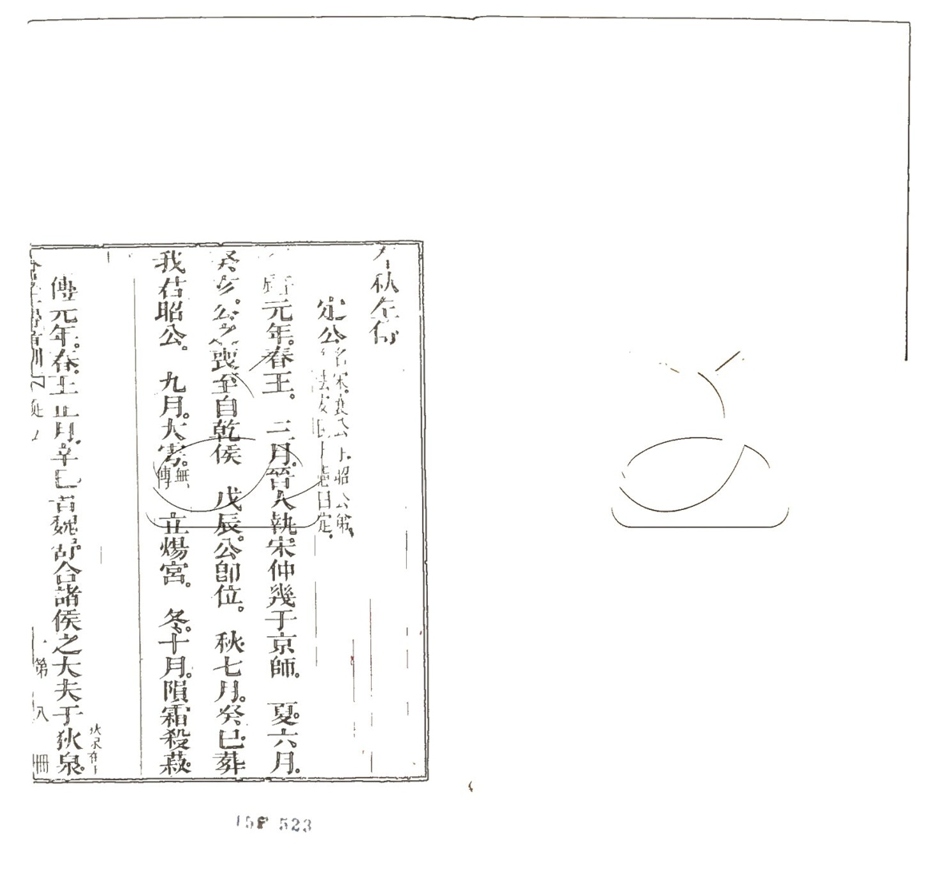 春秋左傳
定公名宋襄公子昭公弟
諡法安民大慮曰定
經元年春王。三月。晉人執宋仲幾于京師。夏。六月。
癸亥。公之喪至自乾侯。戊辰。公即位。秋。七月。癸巳。葬
我君昭公。九月。大雩。無傳立煬宮。冬。十月。隕霜殺菽。
傳元年。春。王正月。辛巳。晉魏舒合諸侯之大夫于狄泉。
第八冊
15 523